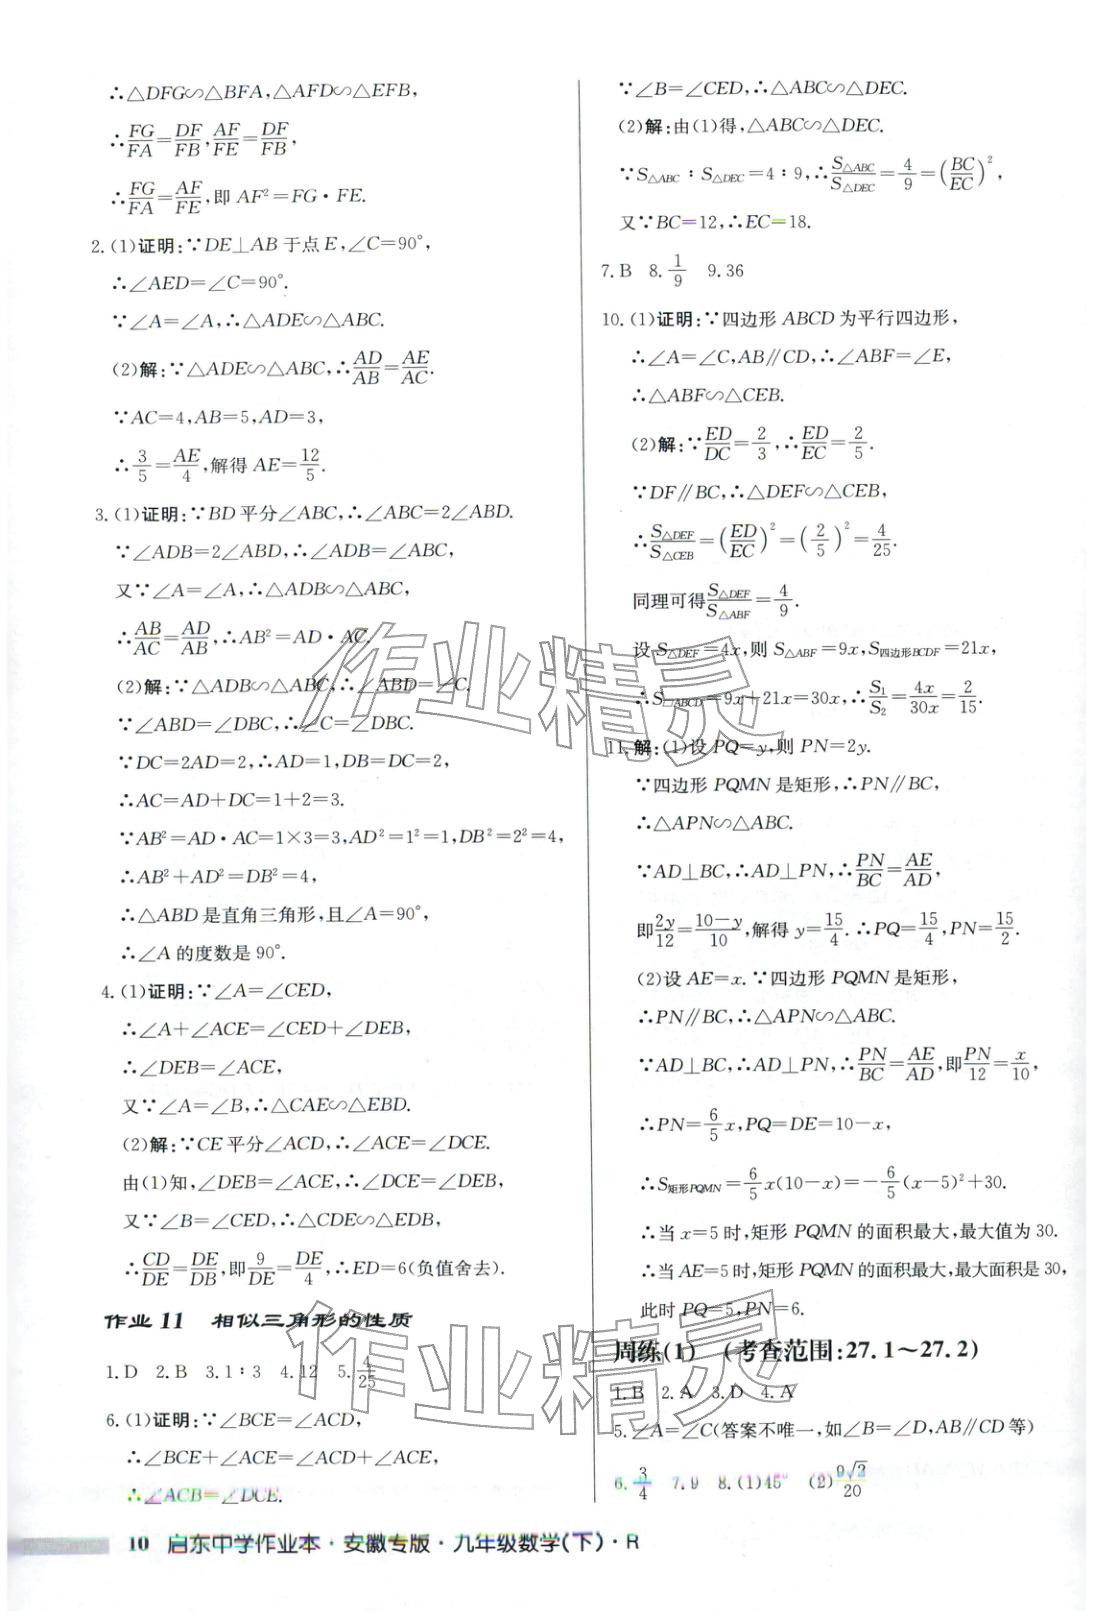 ∴△DFG∽△BFA,△AFD∽△EFB,
∴FG/FA=DF/FB,AF/FE=DF/FB,
∴FG/FA=AF/FE,即 AF²=FG·FE.
2.(1)证明:∵DE⊥AB 于点 E,∠C=90°,
∴∠AED=∠C=90°.
∵∠A=∠A,∴△ADE∽△ABC.
(2)解:∵△ADE∽△ABC,∴AD/AB=AE/AC.
∵AC=4,AB=5,AD=3,
∴3/5=AE/4,解得 AE=12/5.
3.(1)证明:∵BD 平分∠ABC,∴∠ABC=2∠ABD.
∵∠ADB=2∠ABD,∴∠ADB=∠ABC,
又∵∠A=∠A,∴△ADB∽△ABC,
∴AB/AC=AD/AB,∴AB²=AD·AC.
(2)解:∵△ADB∽△ABC,∴∠ABD=∠C.
∵∠ABD=∠DBC,∴∠C=∠DBC.
∵DC=2AD=2,∴AD=1,DB=DC=2,
∴AC=AD+DC=1+2=3.
∵AB²=AD·AC=1×3=3,AD²=1²=1,DB²=2²=4,
∴AB²+AD²=DB²=4,
∴△ABD 是直角三角形,且∠A=90°,
∴∠A 的度数是 90°.
4.(1)证明:∵∠A=∠CED,
∴∠A+∠ACE=∠CED+∠DEB,
∴∠DEB=∠ACE,
又∵∠A=∠B,∴△CAE∽△EBD.
(2)解:∵CE 平分∠ACD,∴∠ACE=∠DCE.
由(1)知,∠DEB=∠ACE,∴∠DCE=∠DEB,
又∵∠B=∠CED,∴△CDE∽△EDB,
∴CD/DE=DE/DB,即9/DE=DE/4,∴ED=6(负值舍去).
作业 11 相似三角形的性质
1.D 2.B 3.1∶3 4.12 5.4/25
6.(1)证明:∵∠BCE=∠ACD,
∴∠BCE+∠ACE=∠ACD+∠ACE,
∴∠ACB=∠DCE.
∵∠B=∠CED,∴△ABC∽△DEC.
(2)解:由(1)得,△ABC∽△DEC.
∵S△ABC∶S△DEC=4∶9,∴S△ABC/S△DEC=4/9=(BC/EC)²,
又∵BC=12,∴EC=18.
7.B 8.1/9 9.36
10.(1)证明:∵四边形 ABCD 为平行四边形,
∴∠A=∠C,AB∥CD,∴∠ABF=∠E,
∴△ABF∽△CEB.
(2)解:∵ED/DC=2/3,∴ED/EC=2/5.
∵DF∥BC,∴△DEF∽△CEB,
∴S△DEF/S△CEB=(ED/EC)²=(2/5)²=4/25.
同理可得S△DEF/S△ABF=4/9.
设 S△DEF=4x,则 S△ABF=9x,S四边形BCDF=21x,
∴S▱ABCD=9x+21x=30x,∴S₁/S₂=4x/30x=2/15.
11.解:(1)设 PQ=y,则 PN=2y.
∵四边形 PQMN 是矩形,∴PN∥BC,
∴△APN∽△ABC.
∵AD⊥BC,∴AD⊥PN,∴PN/BC=AE/AD,
即2y/12=(10-y)/10,解得 y=15/4.∴PQ=15/4,PN=15/2.
(2)设 AE=x.∵四边形 PQMN 是矩形,
∴PN∥BC,∴△APN∽△ABC.
∵AD⊥BC,∴AD⊥PN,∴PN/BC=AE/AD,即PN/12=x/10,
∴PN=6/5x,PQ=DE=10-x,
∴S矩形PQMN=6/5x(10-x)=-6/5(x-5)²+30.
∴当 x=5 时,矩形 PQMN 的面积最大,最大值为 30.
∴当 AE=5 时,矩形 PQMN 的面积最大,最大面积是 30,
此时 PQ=5,PN=6.
周练(1) (考查范围:27.1~27.2)
1.B 2.A 3.D 4.A
5.∠A=∠C(答案不唯一,如∠B=∠D,AB∥CD 等)
6.3/4 7.9 8.(1)45° (2)9√2/20
10 启东中学作业本·安徽专版·九年级数学(下)·R
作业精灵
作业精灵